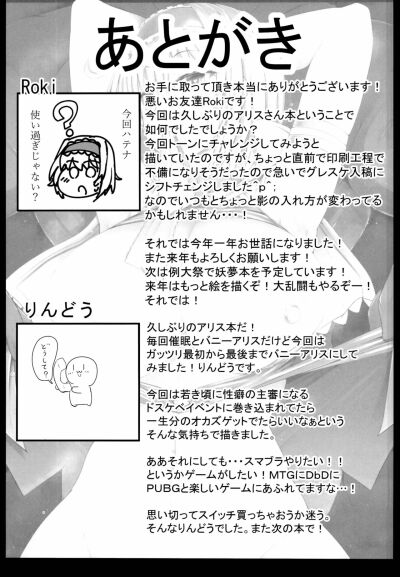 あとがき
Roki
今回ハテナ
使い過ぎじゃない?
お手に取って頂き本当にありがとうございます!
悪いお友達Rokiです!
今回は久しぶりのアリスさん本ということで
如何でしたでしょうか?
今回トーンにチャレンジしてみようと
描いていたのですが、ちょっと直前で印刷工程で
不備になりそうだったので急いでグレスケ入稿に
シフトチェンジしました^p^;
なのでいつもとちょっと影の入れ方が変わってる
かもしれません・・・!
それでは今年一年お世話になりました!
また来年もよろしくお願いします!
次は例大祭で妖夢本を予定しています!
来年はもっと絵を描くぞ!大乱闘もやるぞー!
それでは!
りんどう
どうして?
久しぶりのアリス本だ!
毎回催眠とバニーアリスだけど今回は
ガッツリ最初から最後までバニーアリスにして
みました!りんどうです。
今回は若き頃に性癖の主審になる
ドスケベイベントに巻き込まれてたら
一生分のオカズゲットでたらいいなぁという
そんな気持ちで描きました。
ああそれにしても・・・スマブラやりたい!!
というかゲームがしたい!MTGにDbDに
PUBGと楽しいゲームにあふれてますな…!
思い切ってスイッチ買っちゃおうか迷う。
そんなりんどうでした。また次の本で!